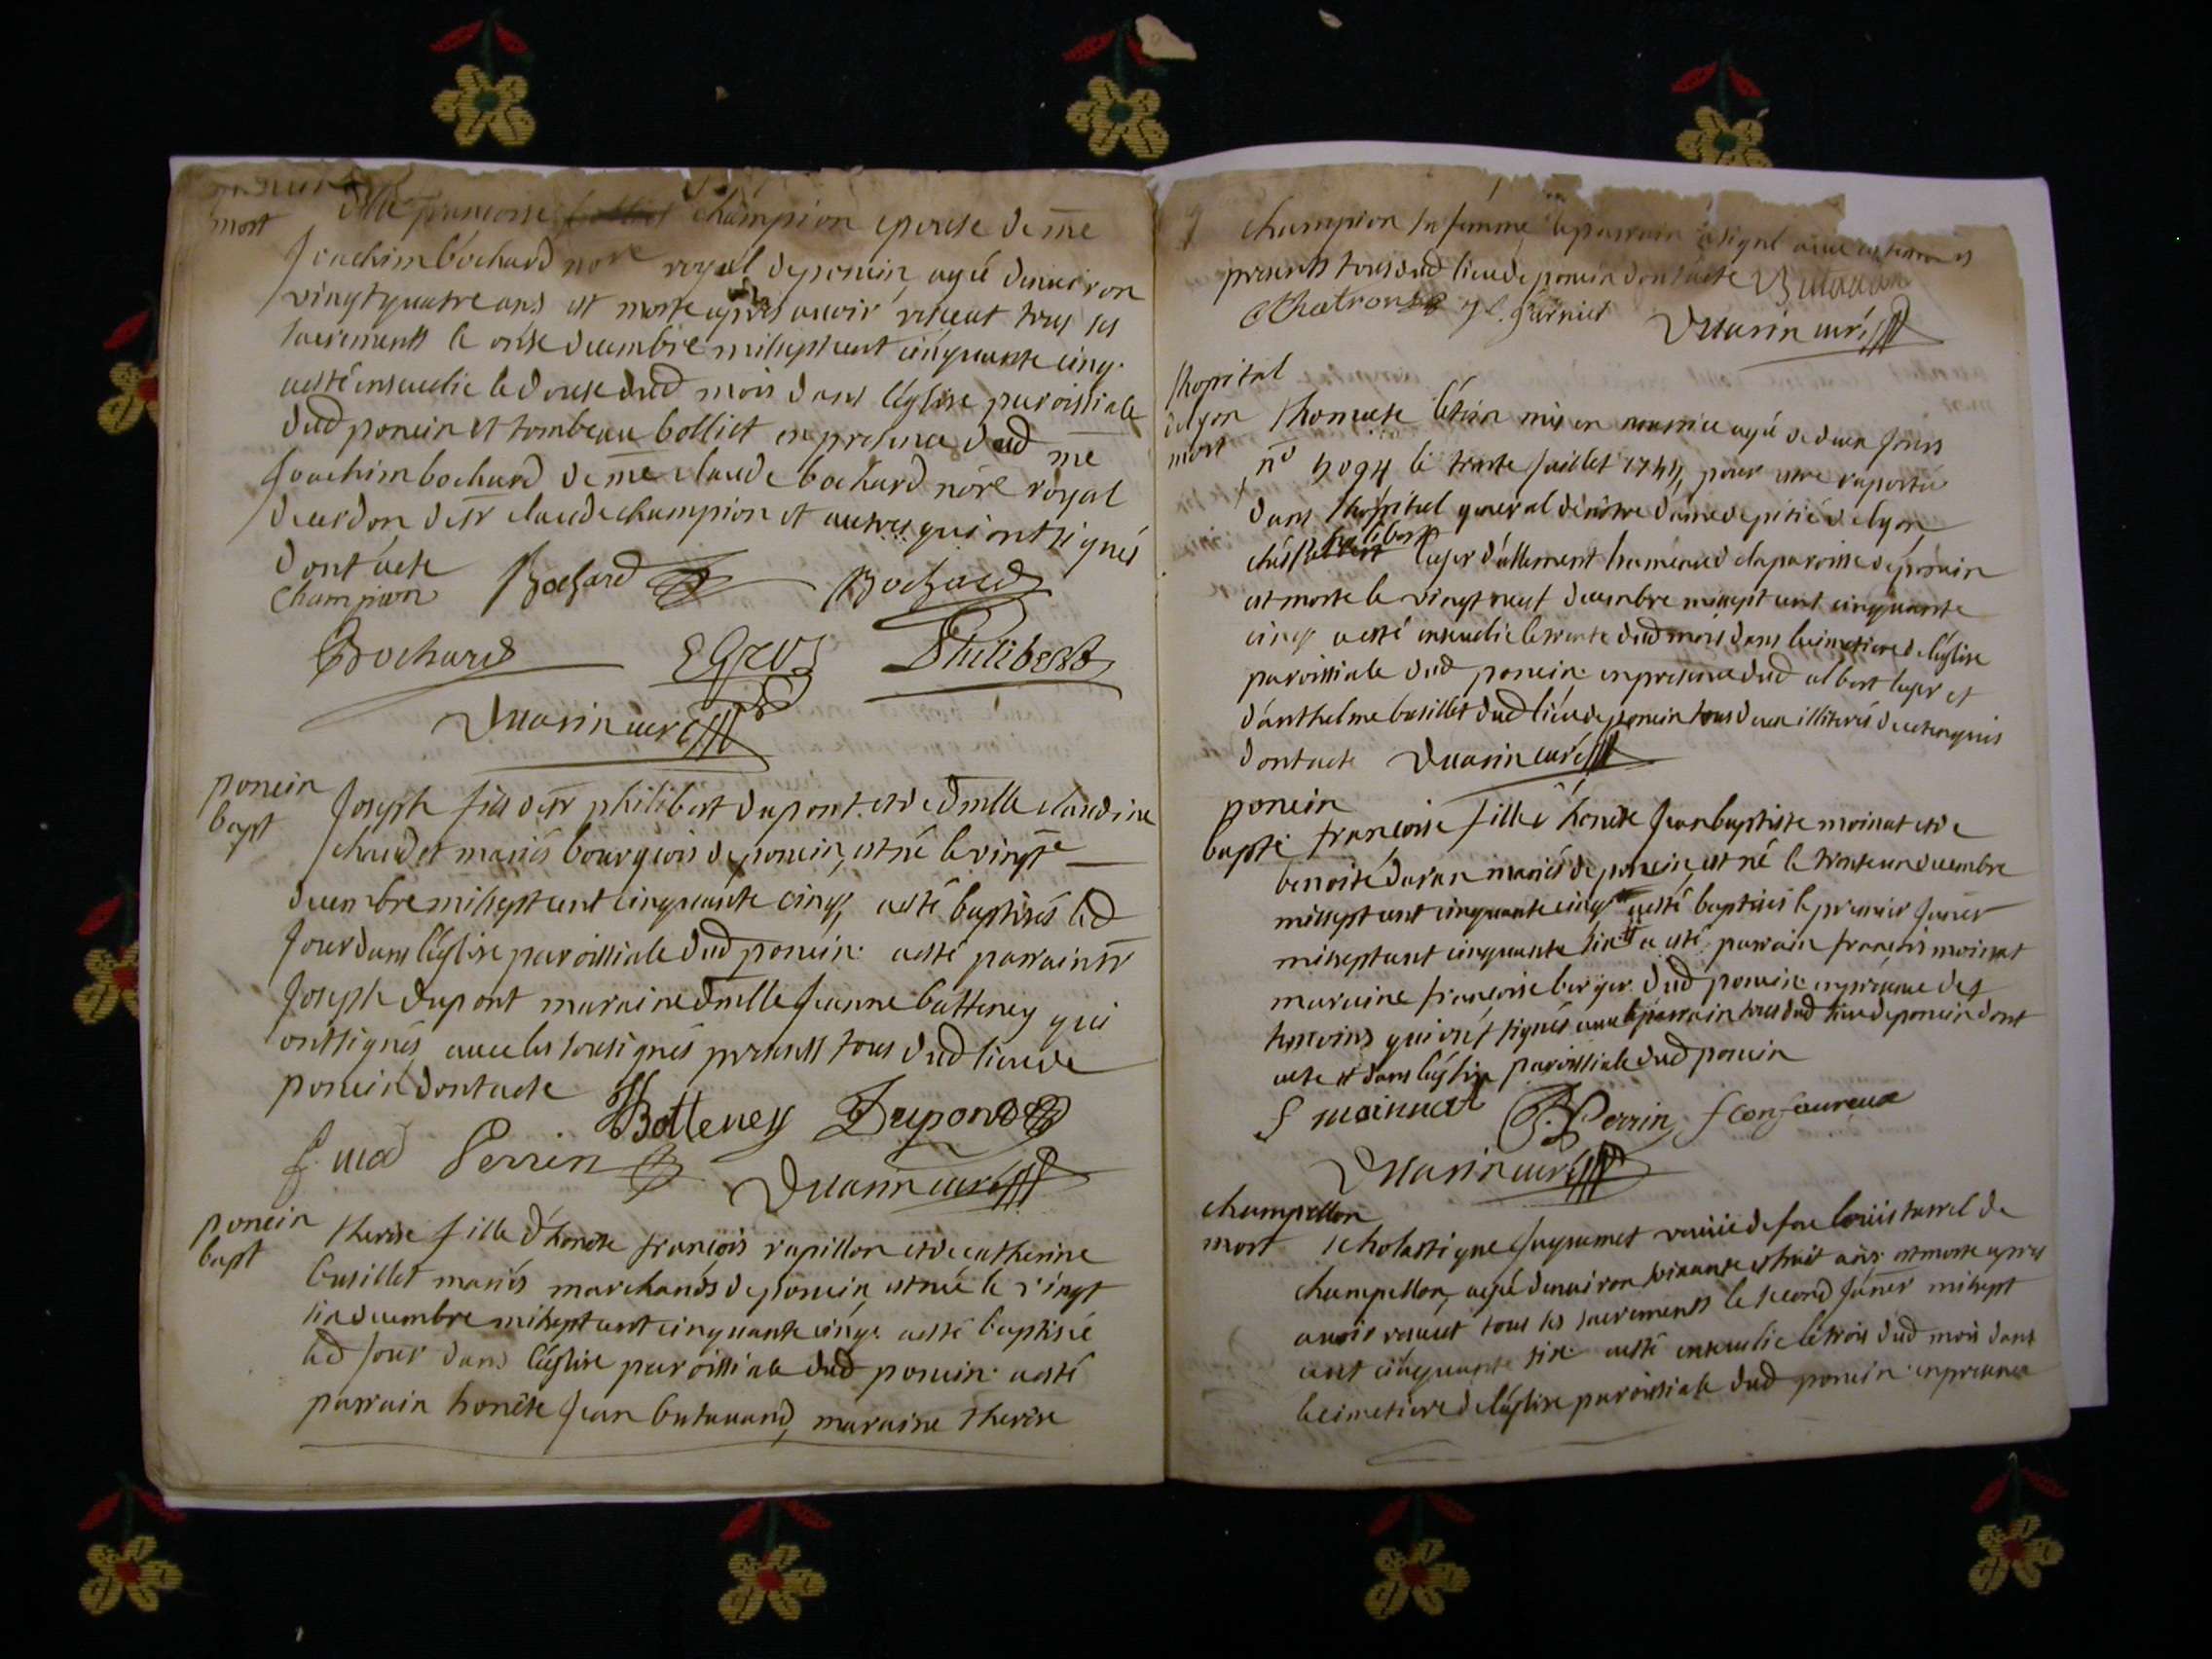 mort
dlle francoise champion epouse de me
Joachim bochard nore royal de poncin, agé denuiron
vingt quatre ans est morte apres auoir receut tous les
sacrements le onse decembre mil sept cent cinquante cinq.
a esté enseuelie le douse dud mois dans l'église paroissiale
dud poncin et tombeau bolliet en presence dud me
Joachim bochard de me claude bochard nore royal
de cerdon de sr claude champion et autres qui ont signés
dont acte
Champion Bochard Bochard
Bochard EGros Philibert
Duarin curé
poncin
bapt
Joseph fils de sr philibert dupont et de dmlle claudine
chaudet mariés bourgeois de poncin, est né le vingte
decembre mil sept cent cinquante cinq, a esté baptisés led
Jour dans l'église paroissiale dud poncin. a esté parrain sr
Joseph dupont maraine dmlle Jeanne batteney qui
ont signés auec les sousignés presents tous dud lieu de
poncin dont acte Botteney Dupond
Perrin Duarin curé
poncin
bapt
therese fille d'honete françois rapillon et de catherine
busillet mariés marchands de poncin, est née le vingt
six decembre mil sept cent cinquante cinq. a esté baptisée
led Jour dans l'église paroissiale dud poncin. a esté
parrain honete Jean butauand, maraine therese
champion sa femme le parrain a signé auec les temoins
presents tous dud lieu de poncin dont acte Butauan
Chatron garnier Duarin curé
l'hopital
de lyon
mort
thomase létain mis en nourrice agé de deux Jours
no 5094 le trente Juillet 1744, pour etre raportée
dans l'hospital general de nôtre dame de pitié de lyon,
chés albert leger d'allement hameau de la paroisse de poncin
est morte le vingt neuf decembre mil sept cent cinquante
cinq a esté enseuelie le trente dud mois dans le cimetiere de l'église
paroissiale dud poncin. en presence dud albert leger et
d'anthelme busillet dud lieu de poncin tous deux illiterés de ce enquis
dont acte Duarin curé
poncin
bapte
francoise fille d'honete Jean baptiste moinat et de
benoite duran mariés de poncin, est né le trente un decembre
mil sept cent cinquante cinq a esté baptisés le premier Janer
mil sept cent cinquante six a esté parrain françois moinat
maraine francoise berger. dud poncin. en presence des
temoins qui ont signés auec le parrain tous dud lieu de poncin dont
acte et dans l'église paroissiale dud poncin
f moinnat P. Perrin f confoureux
Duarin curé
champellon
mort
scholastique Juyaumet veuue de feu louis tarrel de
champellon, agé denuiron soixante et huit ans. est morte apres
auoir receut tous les sacrements le second Janer mil sept
cent cinquante six. a esté enseuelie le trois dud mois dans
le cimetiere de l'église paroissiale dud poncin. en presence